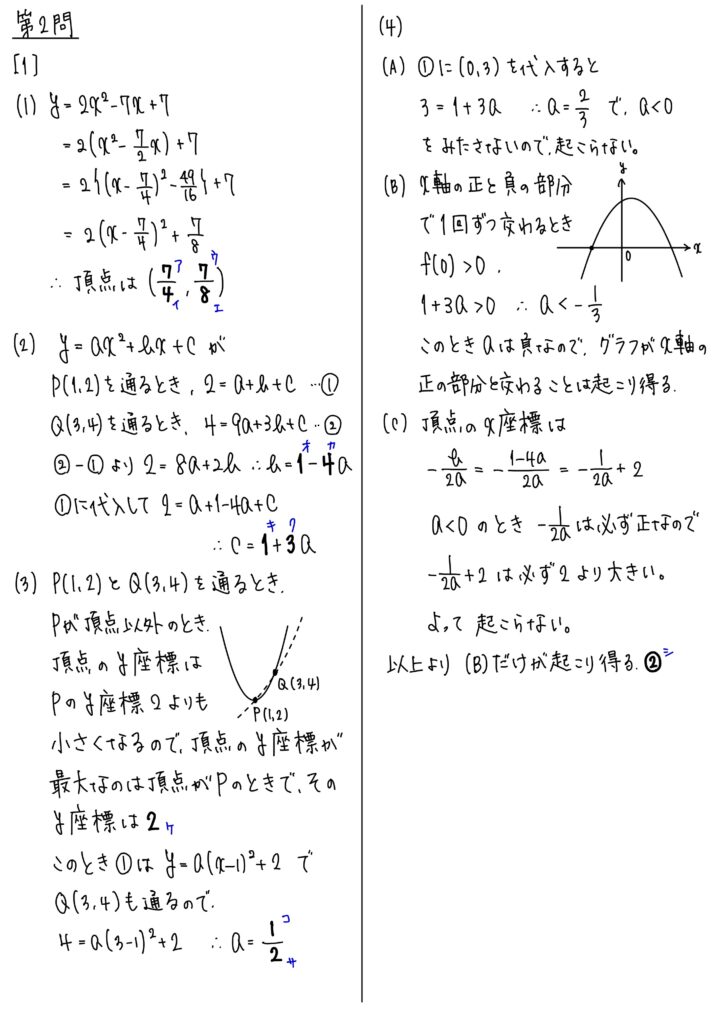 第2問
[1]
(1) y = 2x² - 7x + 7
= 2(x² - 7/2 x) + 7
= 2{(x - 7/4)² - 49/16} + 7
= 2(x - 7/4)² + 7/8
∴ 頂点は (7/4, 7/8) ア イ ウ エ
(2) y = ax² + bx + c が
P(1,2)を通るとき, 2 = a + b + c … ①
Q(3,4)を通るとき, 4 = 9a + 3b + c … ②
② - ① より 2 = 8a + 2b ∴ b = 1 - 4a オ カ
①に代入して 2 = a + 1 - 4a + c
∴ c = 1 + 3a キ ク
(3) P(1,2)とQ(3,4)を通るとき.
Pが頂点以外のとき.
頂点のy座標は
Pのy座標2よりも
小さくなるので, 頂点のy座標が
最大なのは頂点がPのときで, その
y座標は 2 ケ
Q(3,4)
P(1,2)
このとき①は y = a(x-1)² + 2 で
Q(3,4)も通るので.
4 = a(3-1)² + 2 ∴ a = 1/2 コ サ
(4)
(A) ①に(0,3)を代入すると
3 = 1 + 3a ∴ a = 2/3 で, a < 0
をみたさないので, 起こらない。
(B) x軸の正と負の部分
で1回ずつ交わるとき
f(0) > 0.
1 + 3a > 0 ∴ a < -1/3
y
x
0
このときaは負なので, グラフがx軸の
正の部分と交わることは起こり得る.
(C) 頂点のx座標は
-b/2a = -(1-4a)/2a = -1/2a + 2
a < 0 のとき -1/2a は必ず正なので
-1/2a + 2 は必ず2より大きい。
よって 起こらない。
以上より (B)だけが起こり得る. ② シ